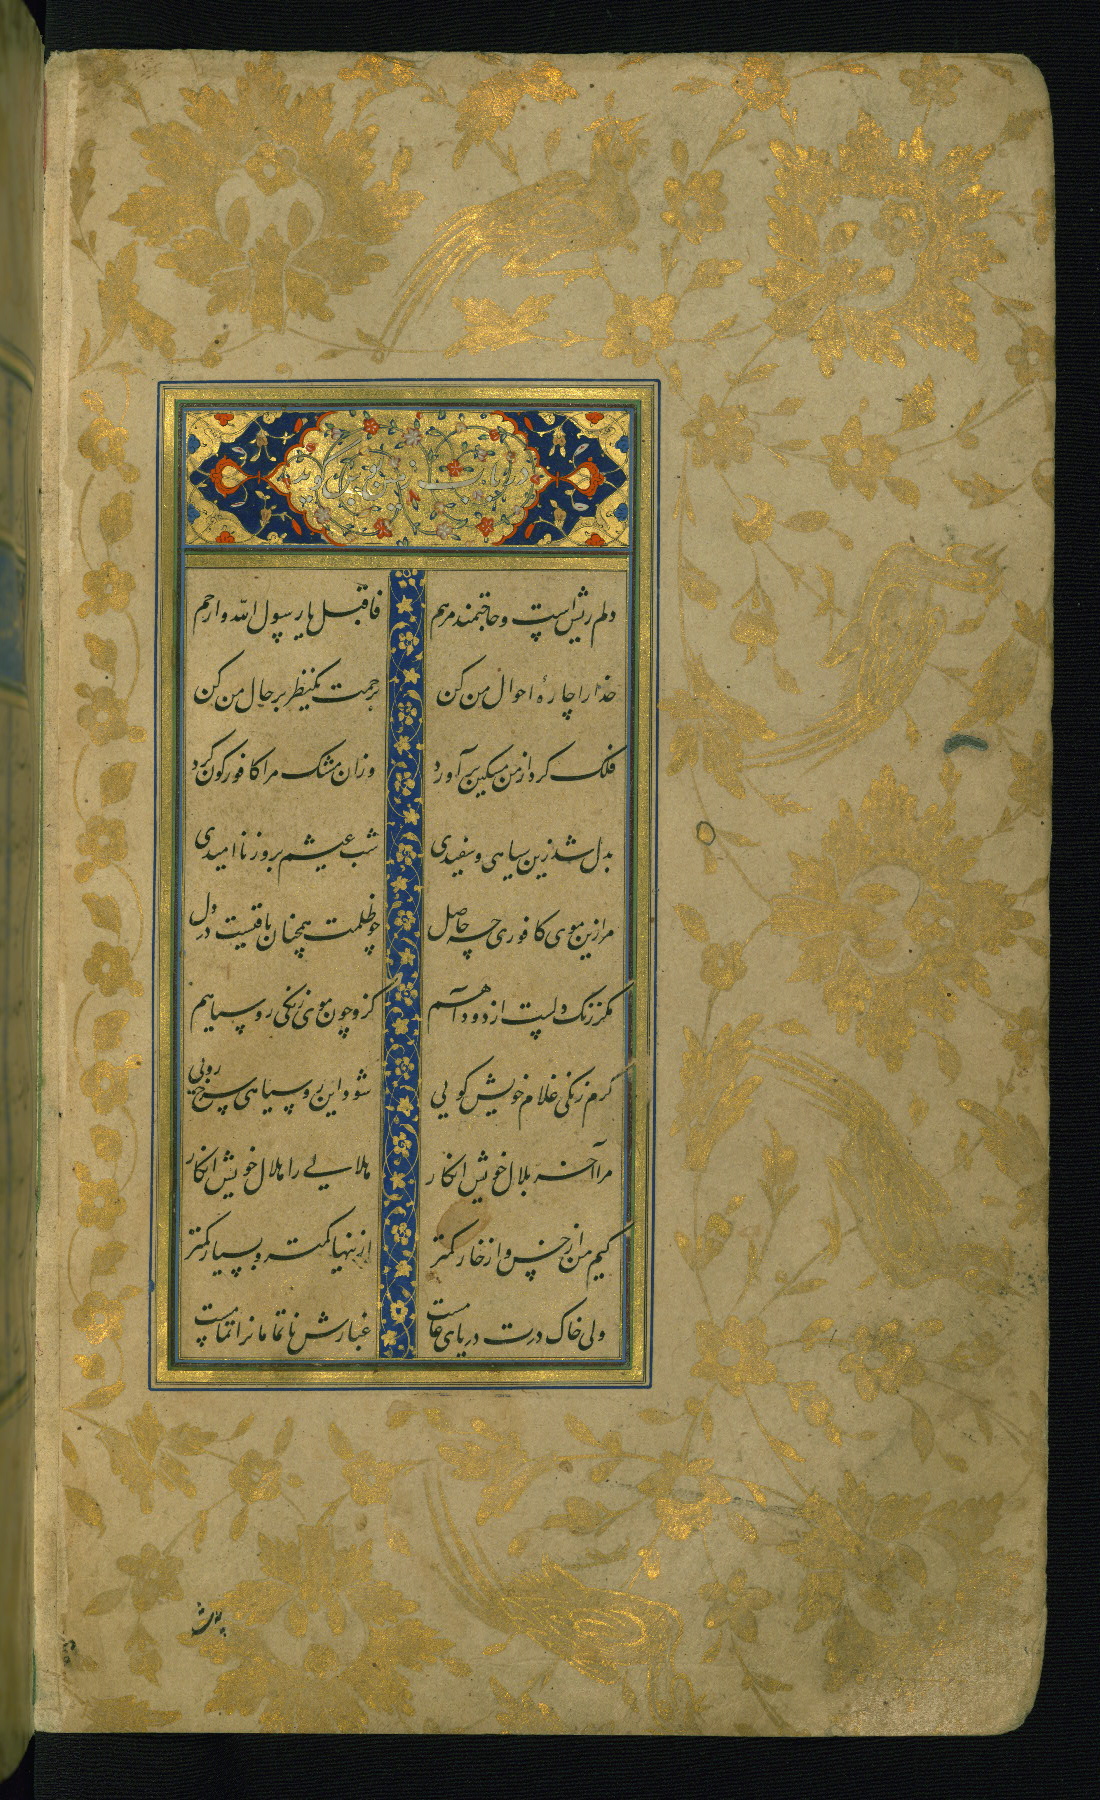 دلم ریش است و حاجتمند مرهم فاقبل یا رسول الله وارحم
خدا را چارهٔ احوال من کن برحمت یکنظر بر حال من کن
فلک گرد از من مسکین برآورد وزان مشک مرا کافورگون کرد
بدل شد زین سیاهی و سفیدی شب عیشم بروز ناامیدی
مرا زین موی کافوری چه حاصل چو ظلمت همچنان باقیست در دل
مگر زنگ دلست از دود آهم کزو چون موی زنگی روسیاهم
گرم زنگی غلام خویش گویی شود این روسیاهی سرخ رویی
مرا آخر بلال خویش انگار هلالی را هلال خویش انگار
کیم من از خس و از خار کمتر ازینها کمتر و بسیار کمتر
ولی خاک درت دریای عامست غبارش ناتمامانرا تمامست